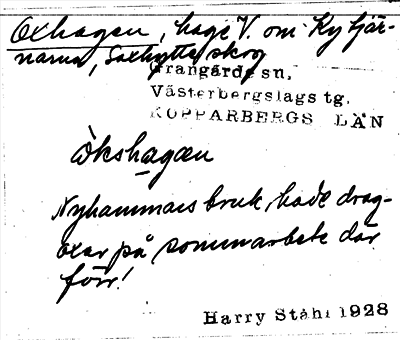 Oxhagen, hage V. om Kytjär-
narna, Saxhytte skog
Grangärde sn,
Västerbergslags tg.
KOPPARBERGS LÄN
òkshagæn
Nyhammars bruk hade drag-
oxar på sommarbete där
förr!
Harry Ståhl 1928